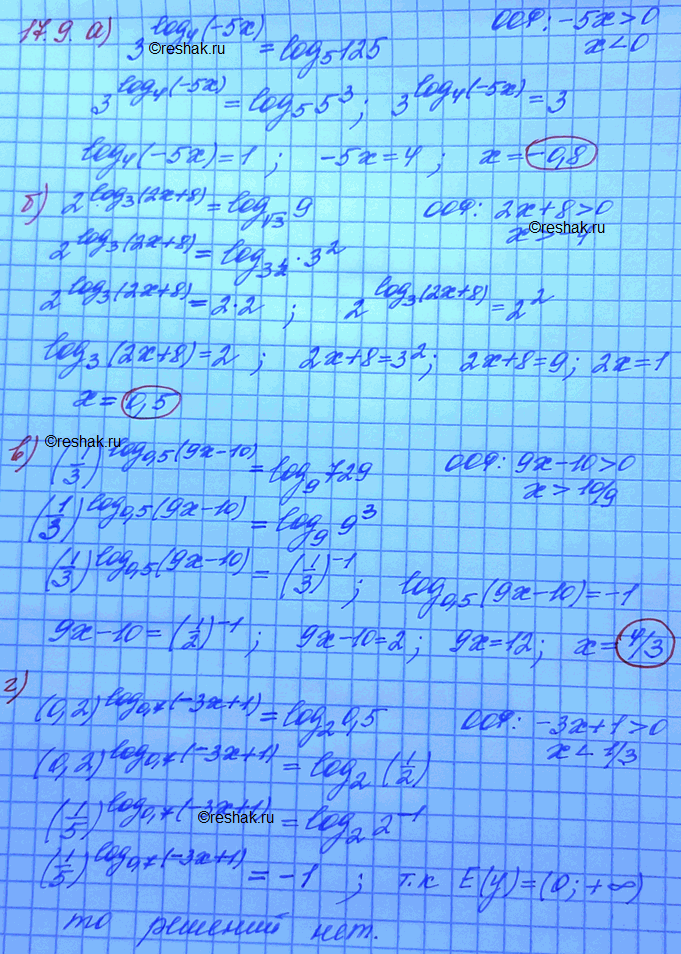 17.9. а) 3^(log₄(-5x)) = log₅125   ООФ: -5x>0
x<0
3^(log₄(-5x)) = log₅5³; 3^(log₄(-5x)) = 3
log₄(-5x)=1; -5x=4; x=-0,8
б) 2^(log₃(2x+8)) = log_√3 9   ООФ: 2x+8>0
x>-4
2^(log₃(2x+8)) = log_(3^(1/2))·3²
2^(log₃(2x+8)) = 2·2; 2^(log₃(2x+8)) = 2²
log₃(2x+8)=2; 2x+8=3²; 2x+8=9; 2x=1
x=0,5
в) (1/3)^(log₀,₅(9x-10)) = log₉729   ООФ: 9x-10>0
x>10/9
(1/3)^(log₀,₅(9x-10)) = log₉9³
(1/3)^(log₀,₅(9x-10)) = (1/3)^(-1); log₀,₅(9x-10)=-1
9x-10=(1/2)^(-1); 9x-10=2; 9x=12; x=4/3
г) (0,2)^(log₀,₇(-3x+1)) = log₂0,5   ООФ: -3x+1>0
x<1/3
(0,2)^(log₀,₇(-3x+1)) = log₂(1/2)
(1/5)^(log₀,₇(-3x+1)) = log₂2^(-1)
(1/5)^(log₀,₇(-3x+1)) = -1; т.к E(y)=(0;+∞)
то решений нет.
©reshak.ru
©reshak.ru
©reshak.ru
©reshak.ru